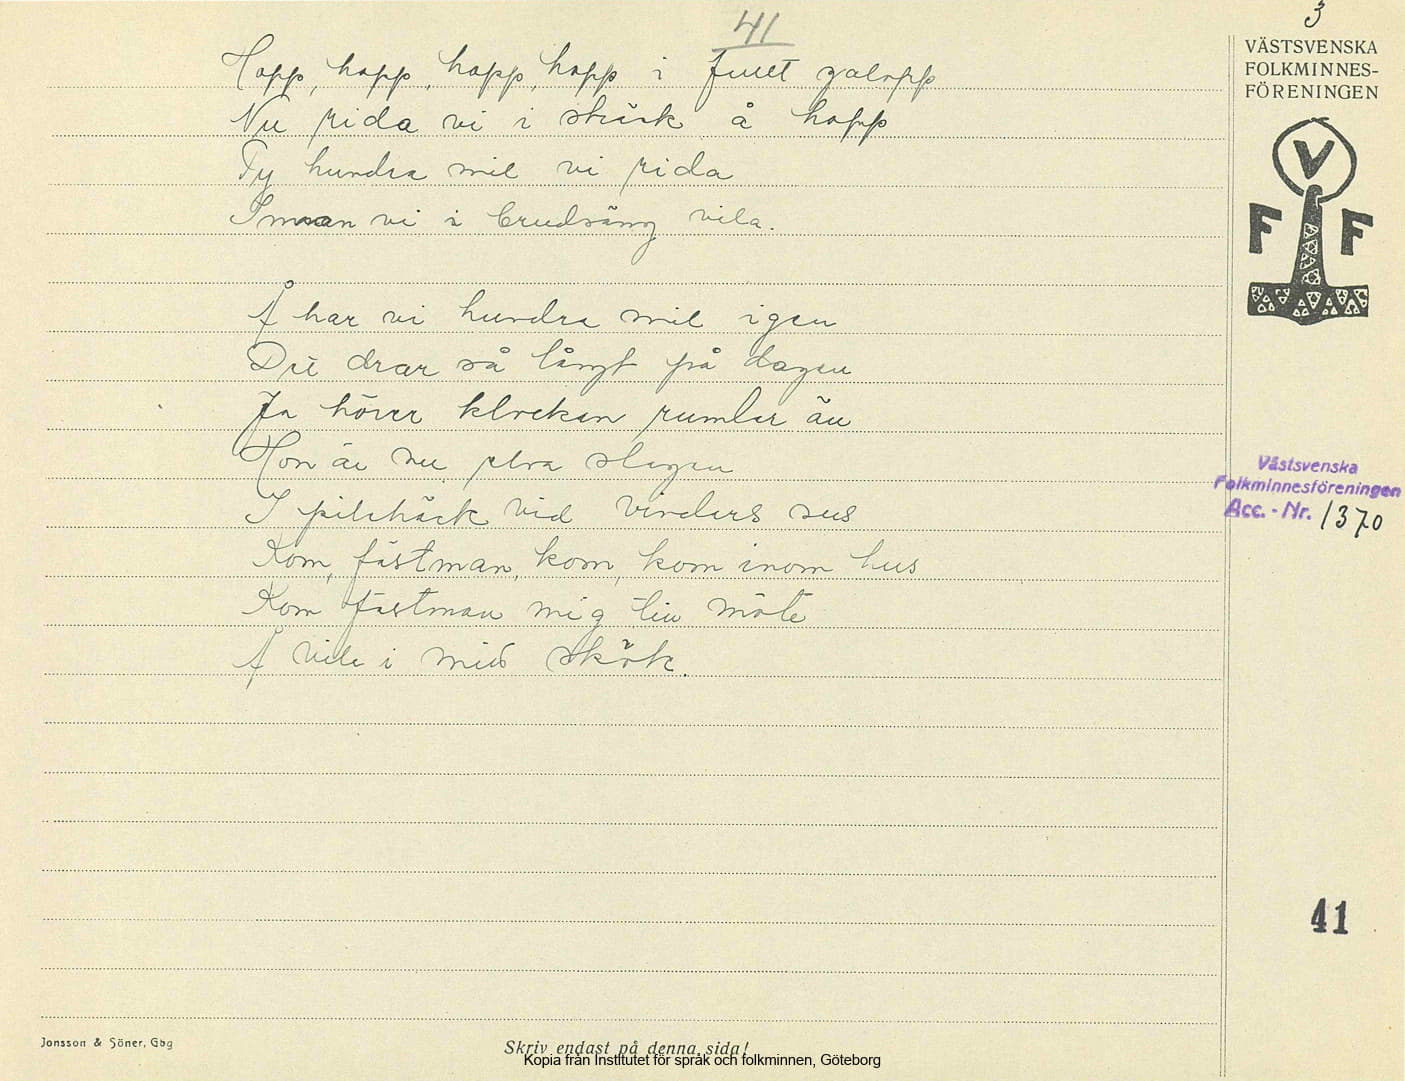 41
3
VÄSTSVENSKA
FOLKMINNES-
FÖRENINGEN
V
F F
Hopp, hopp, hopp, hopp i fullt galopp
Nu rida vi i sträck å hopp
Ty hundra mil vi rida
Innan vi i brudsäng vila.
Å har vi hundra mil igen
Du drar så långt på dagen
Ja hörer klockan rumlar än
Hon är nu elva slagen
I pilehäck vid vinders sus
Kom, fästman, kom, kom inom hus
Kom fästman mig till möte
Å vila i mid sköte.
Västsvenska
Folkminnesföreningen
Acc. - Nr. 1370
41
Jonsson & Söner, Gbg
Skriv endast på denna sida!
Kopia från Institutet för språk och folkminnen, Göteborg